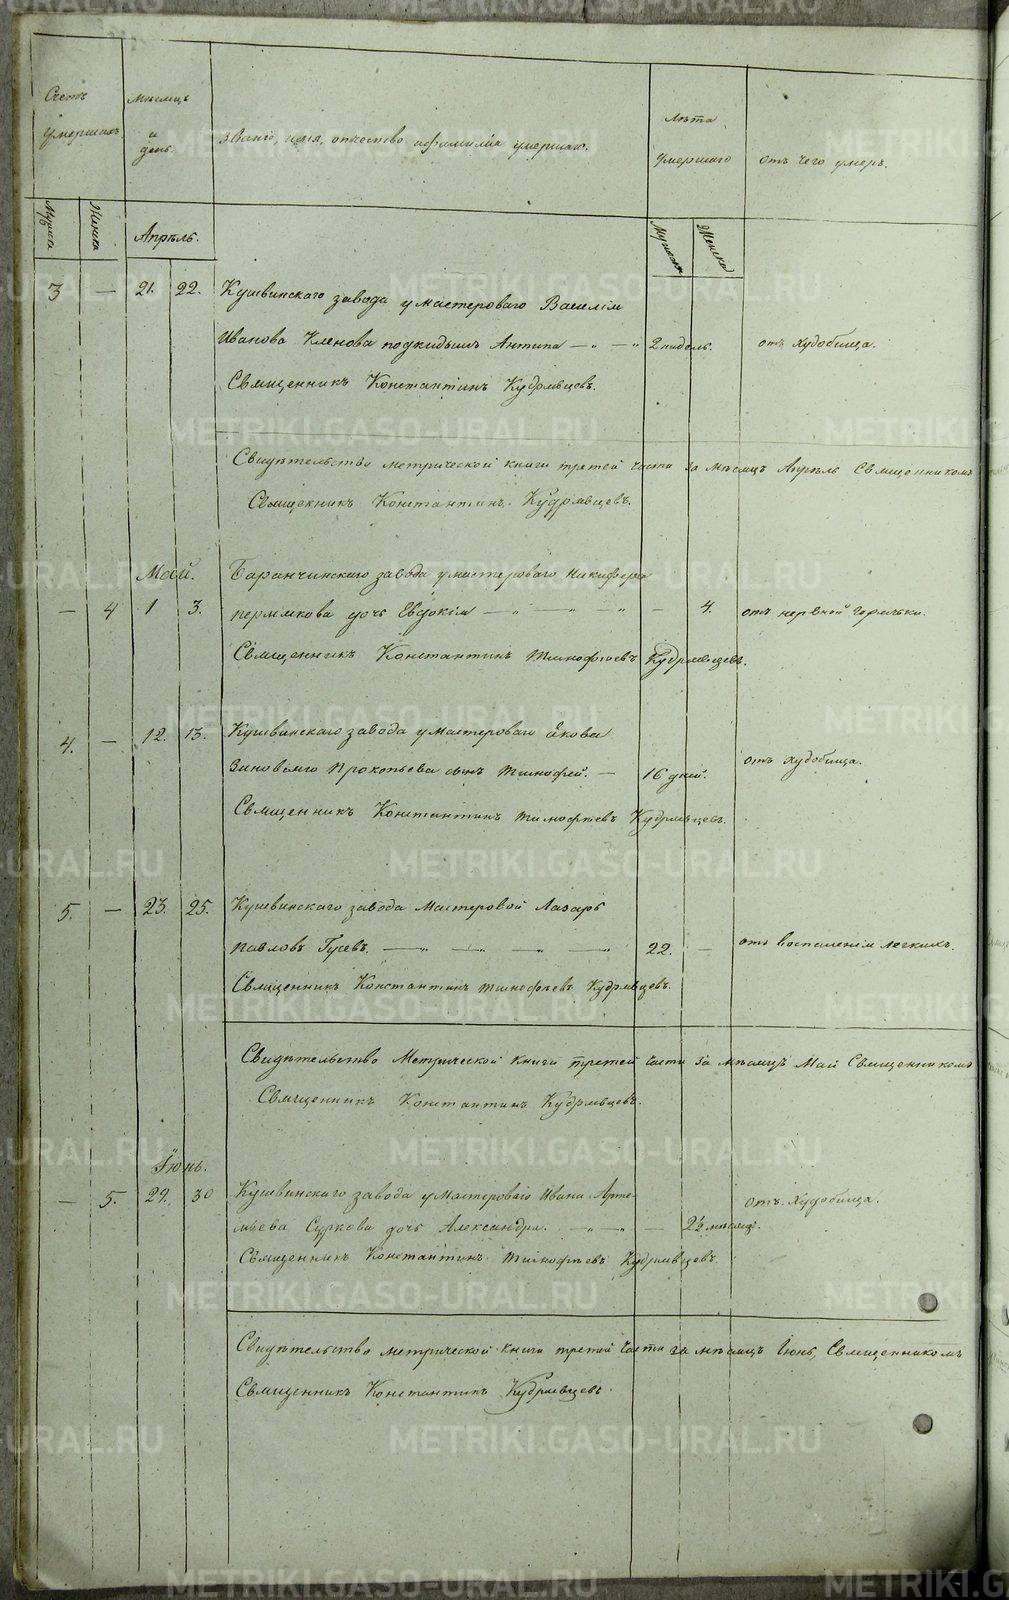 Счетъ умершихъ
Мѣсяцъ и день
Званіе, имя, отчество и фамилія умершаго.
Лѣта умершаго
отъ чего умеръ.
Мужска
Женска
Апрѣль.
Мужска
Женска
3 — 21. 22. Кушвинскаго завода у мастероваго Василія
Иванова Кленова подкидышъ Антипа — „ — „ 2 недѣль. отъ худобища.
Священникъ Константинъ Кудрявцевъ.
Свидѣтельство метрической книги третей части за мѣсяцъ Апрѣль Священникомъ
Священникъ Константинъ Кудрявцевъ.
Маій. Баранчинскаго завода у мастероваго Никифора
— 4 1 3. пермякова дочь Евдокія — „ — „ — „ — 4. отъ нервной горячьки.
Священникъ Константинъ Тимофѣевъ Кудрявцевъ.
4. — 12. 13. Кушвинскаго завода у мастероваго Якова
Зиновьева Прокопьева сынъ Тимофей. — 16 дней. отъ худобища.
Священникъ Константинъ Тимофѣевъ Кудрявцевъ.
5. — 23. 25. Кушвинскаго завода Мастеровой Лазарь
Павловъ Гусевъ. — „ — „ — „ — „ 22. — отъ воспаленія легкихъ.
Священникъ Константинъ Тимофѣевъ Кудрявцевъ.
Свидѣтельство Метрической книги третей части за мѣсяцъ Май Священникомъ
Священникъ Константинъ Кудрявцевъ.
Іюнь.
— 5. 29. 30 Кушвинскаго завода у мастероваго Ивана Арте-
мьева Суркова дочь Александра. — „ — „ — 2½ мѣсяц. отъ худобища.
Священникъ Константинъ Тимофѣевъ Кудрявцевъ.
Свидѣтельство метрической книги третей части за мѣсяцъ Іюнь, Священникомъ
Священникъ Константинъ Кудрявцевъ.
METRIKI.GASO-URAL.RU